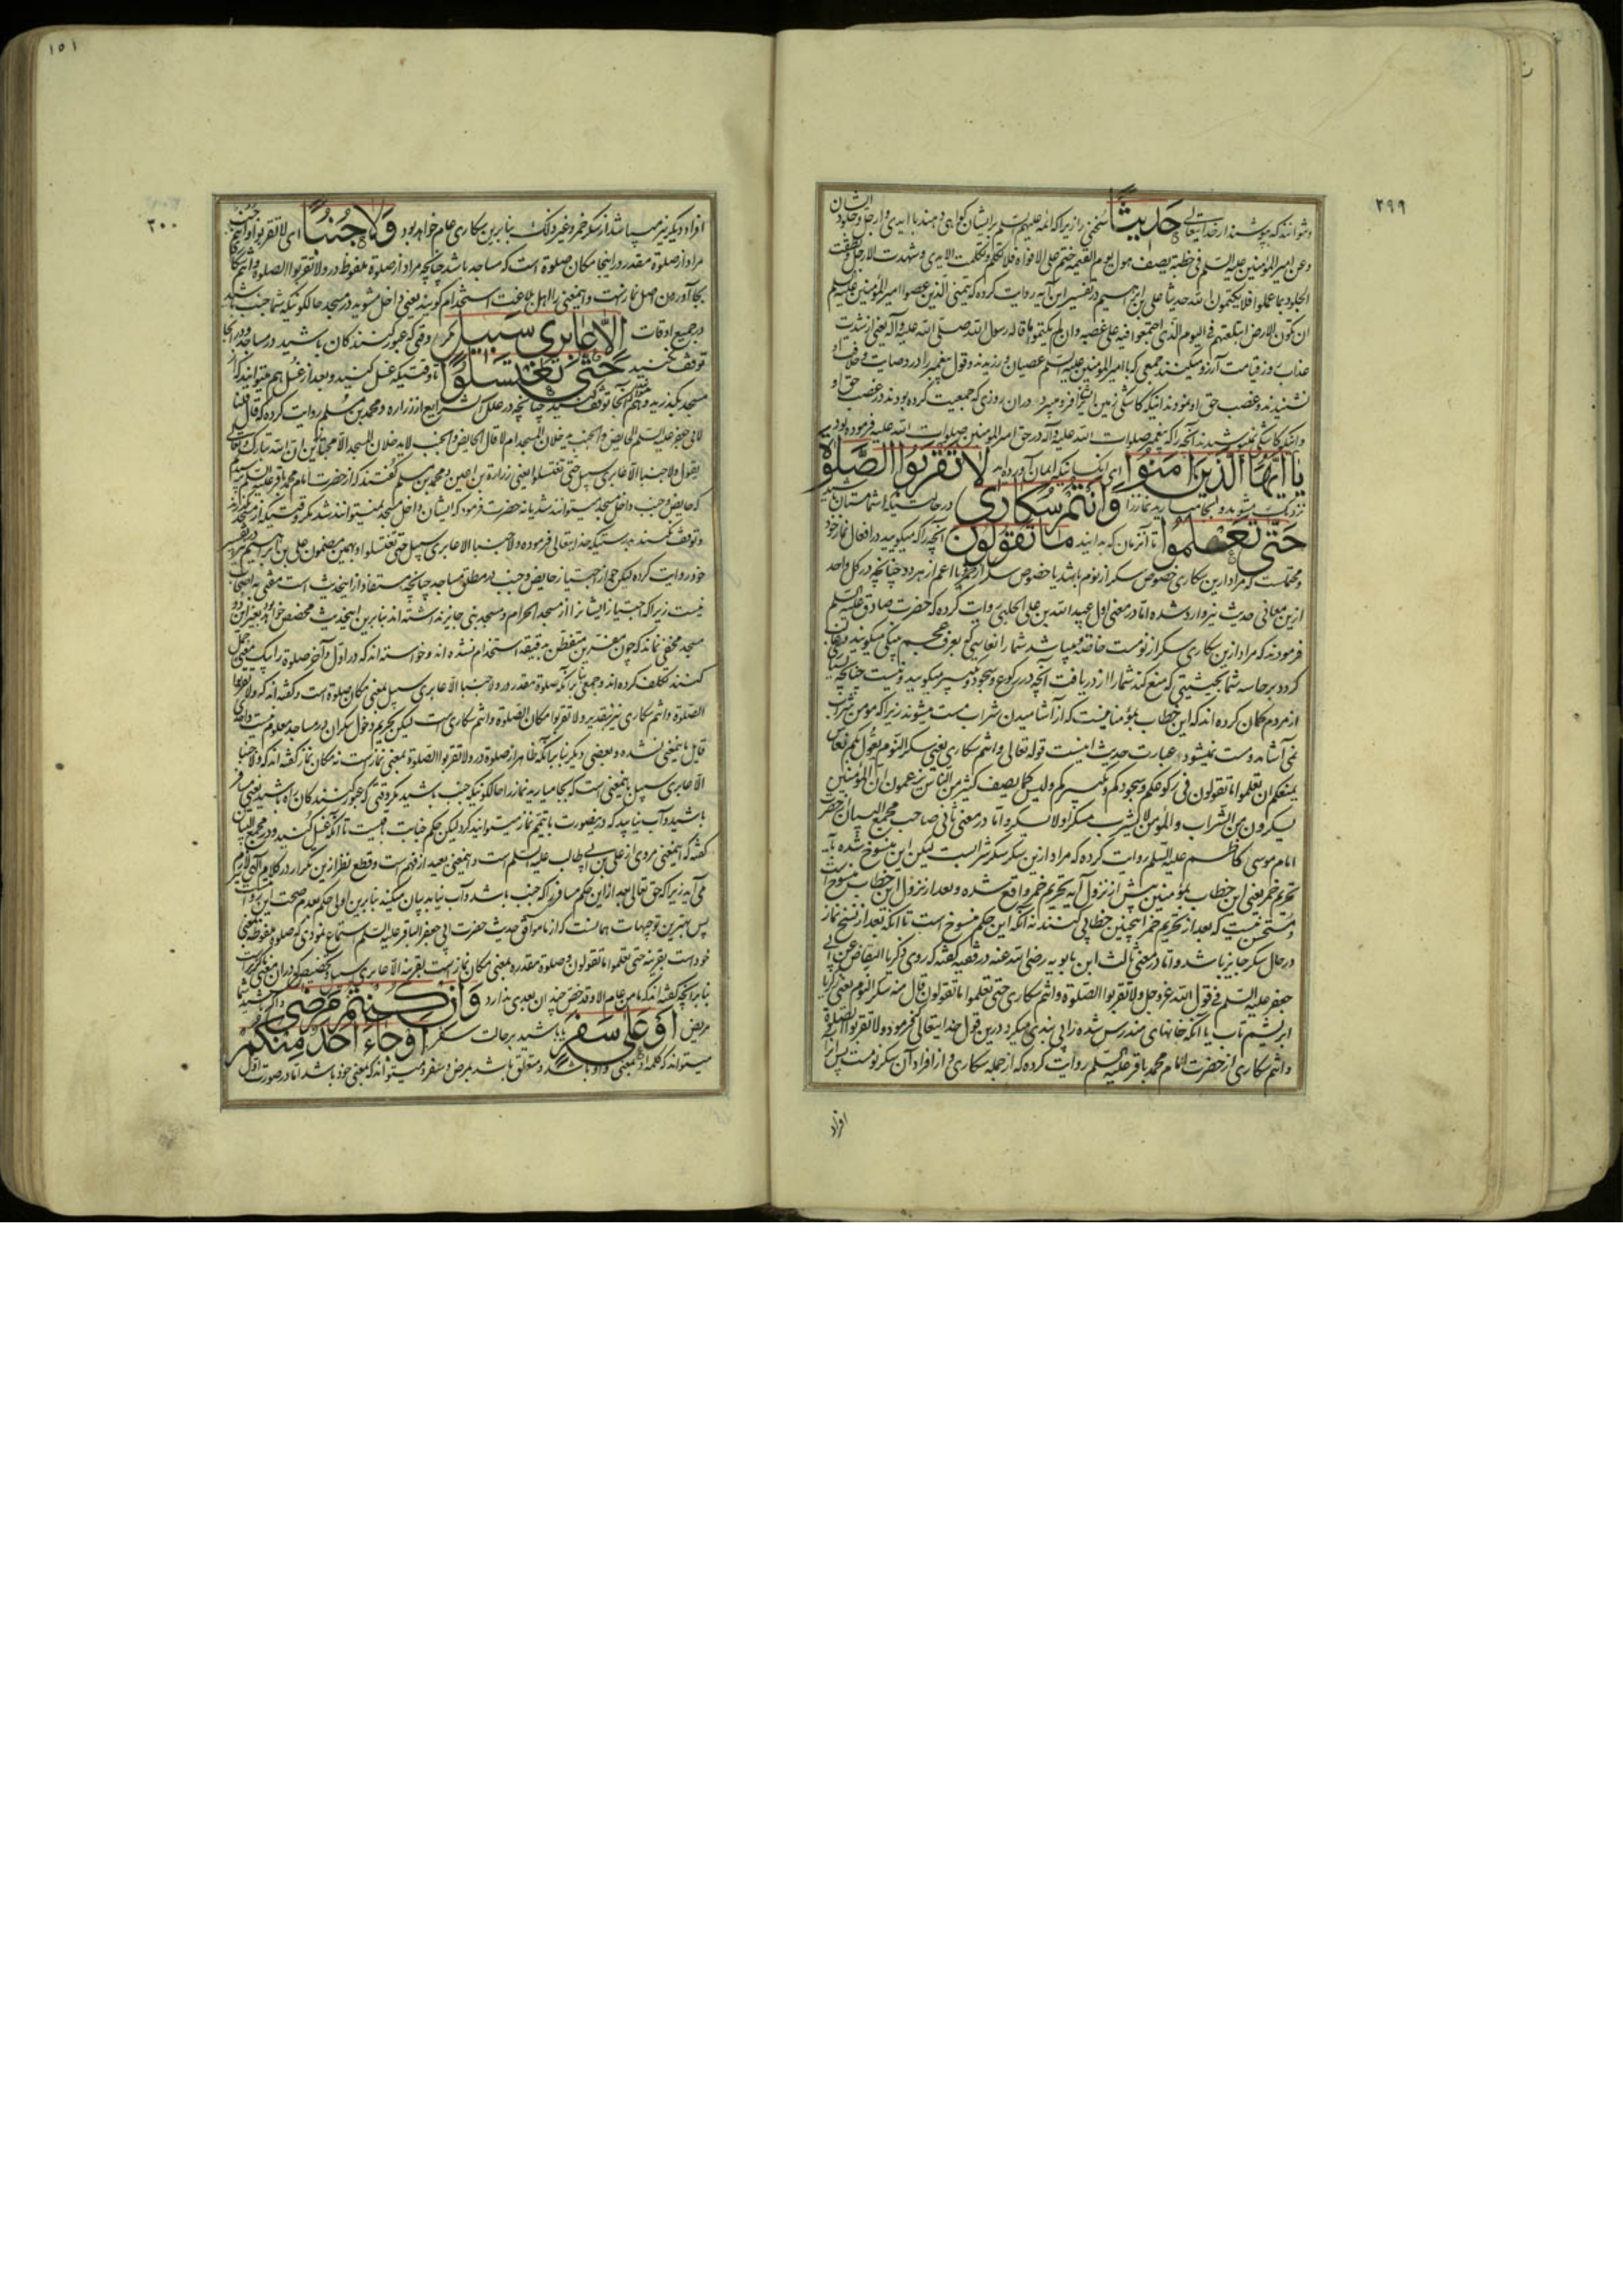 ٢٩٩
ونتوانند که بپوشند از خدایتعالی حَدِیثًا سخنی را زیرا که ائمه علیهم السلم بر ایشان گواهی دهند با ایدی و ارجل و جلود ایشان
وعن امیر المؤمنین علیه السلم فی خطبة یصف هول یوم القیمة ختم علی الافواه فلا تکلم و تکلمت الایدی و شهدت الارجل و نطقت
الجلود بما عملوا فلا یکتمون الله حدیثا علی بن ابراهیم در تفسیر این آیه روایت کرده که یتمنی الذین عصوا امیر المؤمنین علیه السلم
ان تکون الارض ابتلعتهم فی الیوم الذی اجتمعوا فیه علی غصبه وان لم یکتموا ما قاله رسول الله صلی الله علیه وآله یعنی از شدت
عذاب روز قیامت آرزو میکنند جمعی که با امیر المؤمنین علیه السلم عصیان ورزیدند و قول پیغمبر را در وصایت و خلافت او
نشنیدند و غصب حق او نمودند اینکه کاشکی زمین ایشان را فرو میبرد در آن روزی که جمعیت کرده بودند در غصب حق او
و اینکه کاشکی نمیپوشیدند آنچه را که پیغمبر صلوات الله علیه وآله در حق امیر المؤمنین صلوات الله علیه فرموده بود
یَا اَیُّهَا الَّذِینَ اٰمَنُوا ای کسانیکه ایمان آورده‌اید لَا تَقْرَبُوا الصَّلٰوةَ
نزدیک مشوید و بجا میارید نماز را وَاَنْتُمْ سُکَارٰی در حالتیکه شما مستان باشید
حَتّٰی تَعْلَمُوا تا آنزمان که بدانید مَا تَقُولُونَ آنچه را که میگویید در افعال نماز خود
و محتملست که مراد ازین سکاری خصوص سکر از نوم باشد یا خصوص سکر از خمر یا اعم از هر دو چنانچه در کل واحد
ازین معانی حدیث نیز وارد شده اما در معنی اول عبید الله بن علی الحلبی روایت کرده که حضرت صادق علیه السلم
فرمودند که مراد ازین سکاری سکر از نومست خاصة
گردد بر حاسه شما بحیثیتی که منع کند شما را از دریافت آنچه در رکوع و سجود و تکبیر میگویید و نیست چنانچه بسیاری
از مردم گمان کرده‌اند که این خطاب بمؤمنانیست که از آشامیدن شراب مست میشوند زیرا که مومن شراب
نمی‌آشامد و مست نمیشود و عبارت حدیث اینست قوله تعالی وانتم سکاری یعنی سکر النوم یقول بکم نعاس
یمنعکم ان تعلموا ما تقولون فی رکوعکم و سجودکم و تکبیرکم ولیس کما یصف کثیر من الناس یزعمون ان المؤمنین
یسکرون من الشراب والمؤمن لا یشرب مسکرا ولا یسکر و اما در معنی ثانی صاحب مجمع البیان از حضرت
امام موسی کاظم علیه السلم روایت کرده که مراد ازین سکر سکر شرابست لیکن این منسوخ شده بآیه
تحریم خمر یعنی این خطاب بمؤمنین پیش از نزول آیه تحریم خمر واقع شده و بعد از نزول این خطاب منسوخ است
و مستحسن نیست که بعد از تحریم خمر اینچنین خطابی کنند نه آنکه این حکم منسوخ است تا آنکه بعد از نسخ نماز
در حال سکر جایز باشد و اما در معنی ثالث ابن بابویه رضی الله عنه در فقیه گفته که روی زکریا النقاض عن ابی
جعفر علیه السلم فی قول الله عز وجل ولا تقربوا الصلوة وانتم سکاری حتی تعلموا ما تقولون قال منه سکر النوم یعنی زکریا
و انتم سکاری از حضرت امام محمد باقر علیه السلم روایت کرده که از جمله سکاری و از افراد آن سکر نومست پس
افراد
١٥١
٣٠٠
افراد دیگر نیز میباشد از سکر خمر و غیر ذلک بنابرین سکاری عام خواهد بود وَلَا جُنُبًا ای لا تقربوا
مراد از صلوة مقدر در اینجا مکان صلوة است که مساجد باشد چنانچه مراد از صلوة ملفوظ در ولا تقربوا الصلوة وانتم سکاری
بجا آوردن اصل نمازست و اینمعنی را اهل بلاغت استخدام گویند یعنی داخل مشوید در مسجد حالکونیکه شما جنب باشید
در جمیع اوقات اِلَّا عَابِرِی سَبِیلٍ مگر وقتی که عبور کنندگان باشید در مساجد و در آنجا
توقف نکنید حَتّٰی تَغْتَسِلُوا تا وقتیکه غسل کنید و بعد از غسل هم میتوانید که از
مسجد بگذرید و هم در آنجا توقف کنید چنانچه در علل الشرایع از زراره و محمد بن مسلم روایت کرده که قال قلنا
لابی جعفر علیه السلم الحایض والجنب یدخلان المسجد ام لا قال الحایض والجنب لا یدخلان المسجد الا مجتازین ان الله تبارک وتعالی
یقول ولا جنبا الا عابری سبیل حتی تغتسلوا یعنی زرارة بن اعین و محمد بن مسلم گفتند که از حضرت امام محمد باقر علیه السلم پرسیدیم
که حایض و جنب داخل مسجد میتوانند شد یا نه حضرت فرمود که ایشان داخل مسجد نمیتوانند شد مگر وقتیکه از مسجد بگذرند
و توقف نکنند بدرستیکه خدایتعالی فرموده ولا جنبا الا عابری سبیل حتی تغتسلوا و بهمین مضمون علی بن ابراهیم در تفسیر
خود روایت کرده لیکن جواز اجتیاز حایض و جنب در مطلق مساجد چنانچه مستفاد از اینحدیث است مفتی به اصحاب
نیست زیرا که اجتیاز ایشانرا از مسجد الحرام و مسجد نبی جایز نداشته‌اند بنابرین اینحدیث مخصص خواهد بود بغیر این دو
مسجد مخفی نماند که چون مفسرین متفطن بدقیقه استخدام نشده‌اند و خواسته‌اند که در اول و آخر صلوة را بیک معنی حمل
کنند تکلف کرده‌اند و جمعی بنابر آنکه صلوة مقدر در ولا جنبا الا عابری سبیل بمعنی مکان صلوة است گفته‌اند که ولا تقربوا
الصلوة وانتم سکاری نیز بتقدیر ولا تقربوا مکان الصلوة وانتم سکاری است لیکن تحریم دخول سکران در مساجد معلوم نیست و احدی
قایل باینمعنی نشده و بعضی دیگر بنابر آنکه ظاهر از صلوة در ولا تقربوا الصلوة بمعنی نمازست نه مکان نماز گفته‌اند که ولا جنبا
الا عابری سبیل باینمعنی است که بجا میارید نماز را حالکونیکه جنب باشید مگر وقتی که عبور کنندگان راه باشید یعنی مسافر
باشید و آب نیابید که درینصورت با تیمم نماز میتوانید کرد لیکن حکم جنابت باقیست تا آنکه غسل کنید و در مجمع البیان
گفته که اینمعنی مروی از علی بن ابی طالب علیه السلم است و اینمعنی بعید از فهم است و قطع نظر ازین تکرار در کلام الهی لازم
می‌آید زیرا که حق تعالی بعد از این حکم مسافری را که جنب باشد و آب نیابد بیان میکند بنابرین اولی حکم بعدم صحت این روایت
پس بهترین توجیهات همانست که از ما موافق حدیث حضرت ابی جعفر الباقر علیه السلم استماع نمودی که صلوة ملفوظه بمعنی
خود است بقرینه حتی تعلموا ما تقولون و صلوة مقدره بمعنی مکان نمازست بقرینه الا عابری سبیل
بنابر آنچه گفته‌اند که ما من عام الا وقد خص چندان بعدی ندارد وَاِنْ کُنْتُمْ مَرْضٰی و اگر باشید شما
مریض اَوْ عَلٰی سَفَرٍ یا باشید بر حالت سفر اَوْ جَاءَ اَحَدٌ مِنْکُمْ
میتواند که کلمه او بمعنی واو باشد و متعلق باشد بمرض و سفر و میتواند که بمعنی خود باشد اما در صورت اول